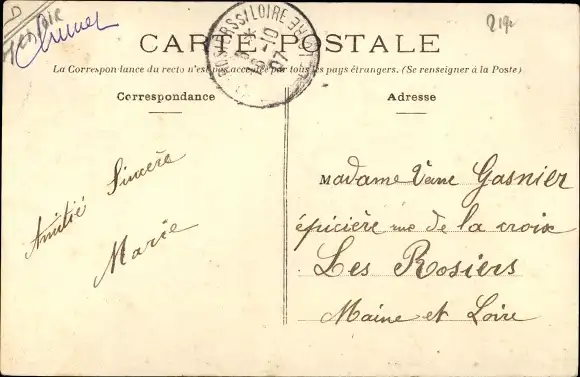 CARTE POSTALE
La Correspondance du recto n'est pas acceptée par tous les pays étrangers. (Se renseigner à la Poste)
Correspondance
Adresse
Amitié Sincère
Marie
Madame Vve Gasnier
épicière rue de la croix
Les Rosiers
Maine et Loire